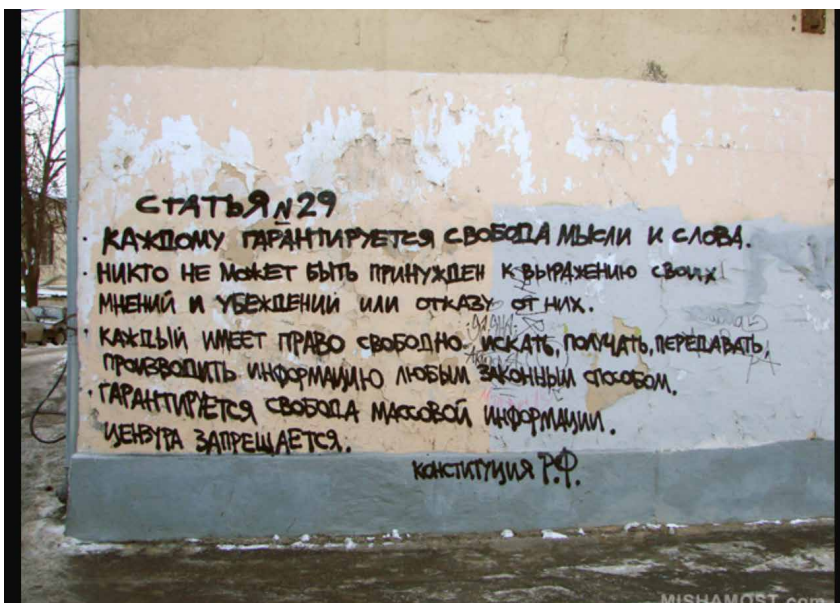 СТАТЬЯ №29
· КАЖДОМУ ГАРАНТИРУЕТСЯ СВОБОДА МЫСЛИ И СЛОВА.
· НИКТО НЕ МОЖЕТ БЫТЬ ПРИНУЖДЕН К ВЫРАЖЕНИЮ СВОИХ
МНЕНИЙ И УБЕЖДЕНИЙ ИЛИ ОТКАЗУ ОТ НИХ.
· КАЖДЫЙ ИМЕЕТ ПРАВО СВОБОДНО ИСКАТЬ, ПОЛУЧАТЬ, ПЕРЕДАВАТЬ,
ПРОИЗВОДИТЬ ИНФОРМАЦИЮ ЛЮБЫМ ЗАКОННЫМ СПОСОБОМ.
· ГАРАНТИРУЕТСЯ СВОБОДА МАССОВОЙ ИНФОРМАЦИИ.
ЦЕНЗУРА ЗАПРЕЩАЕТСЯ.
КОНСТИТУЦИЯ Р.Ф.
MISHAMOST.com